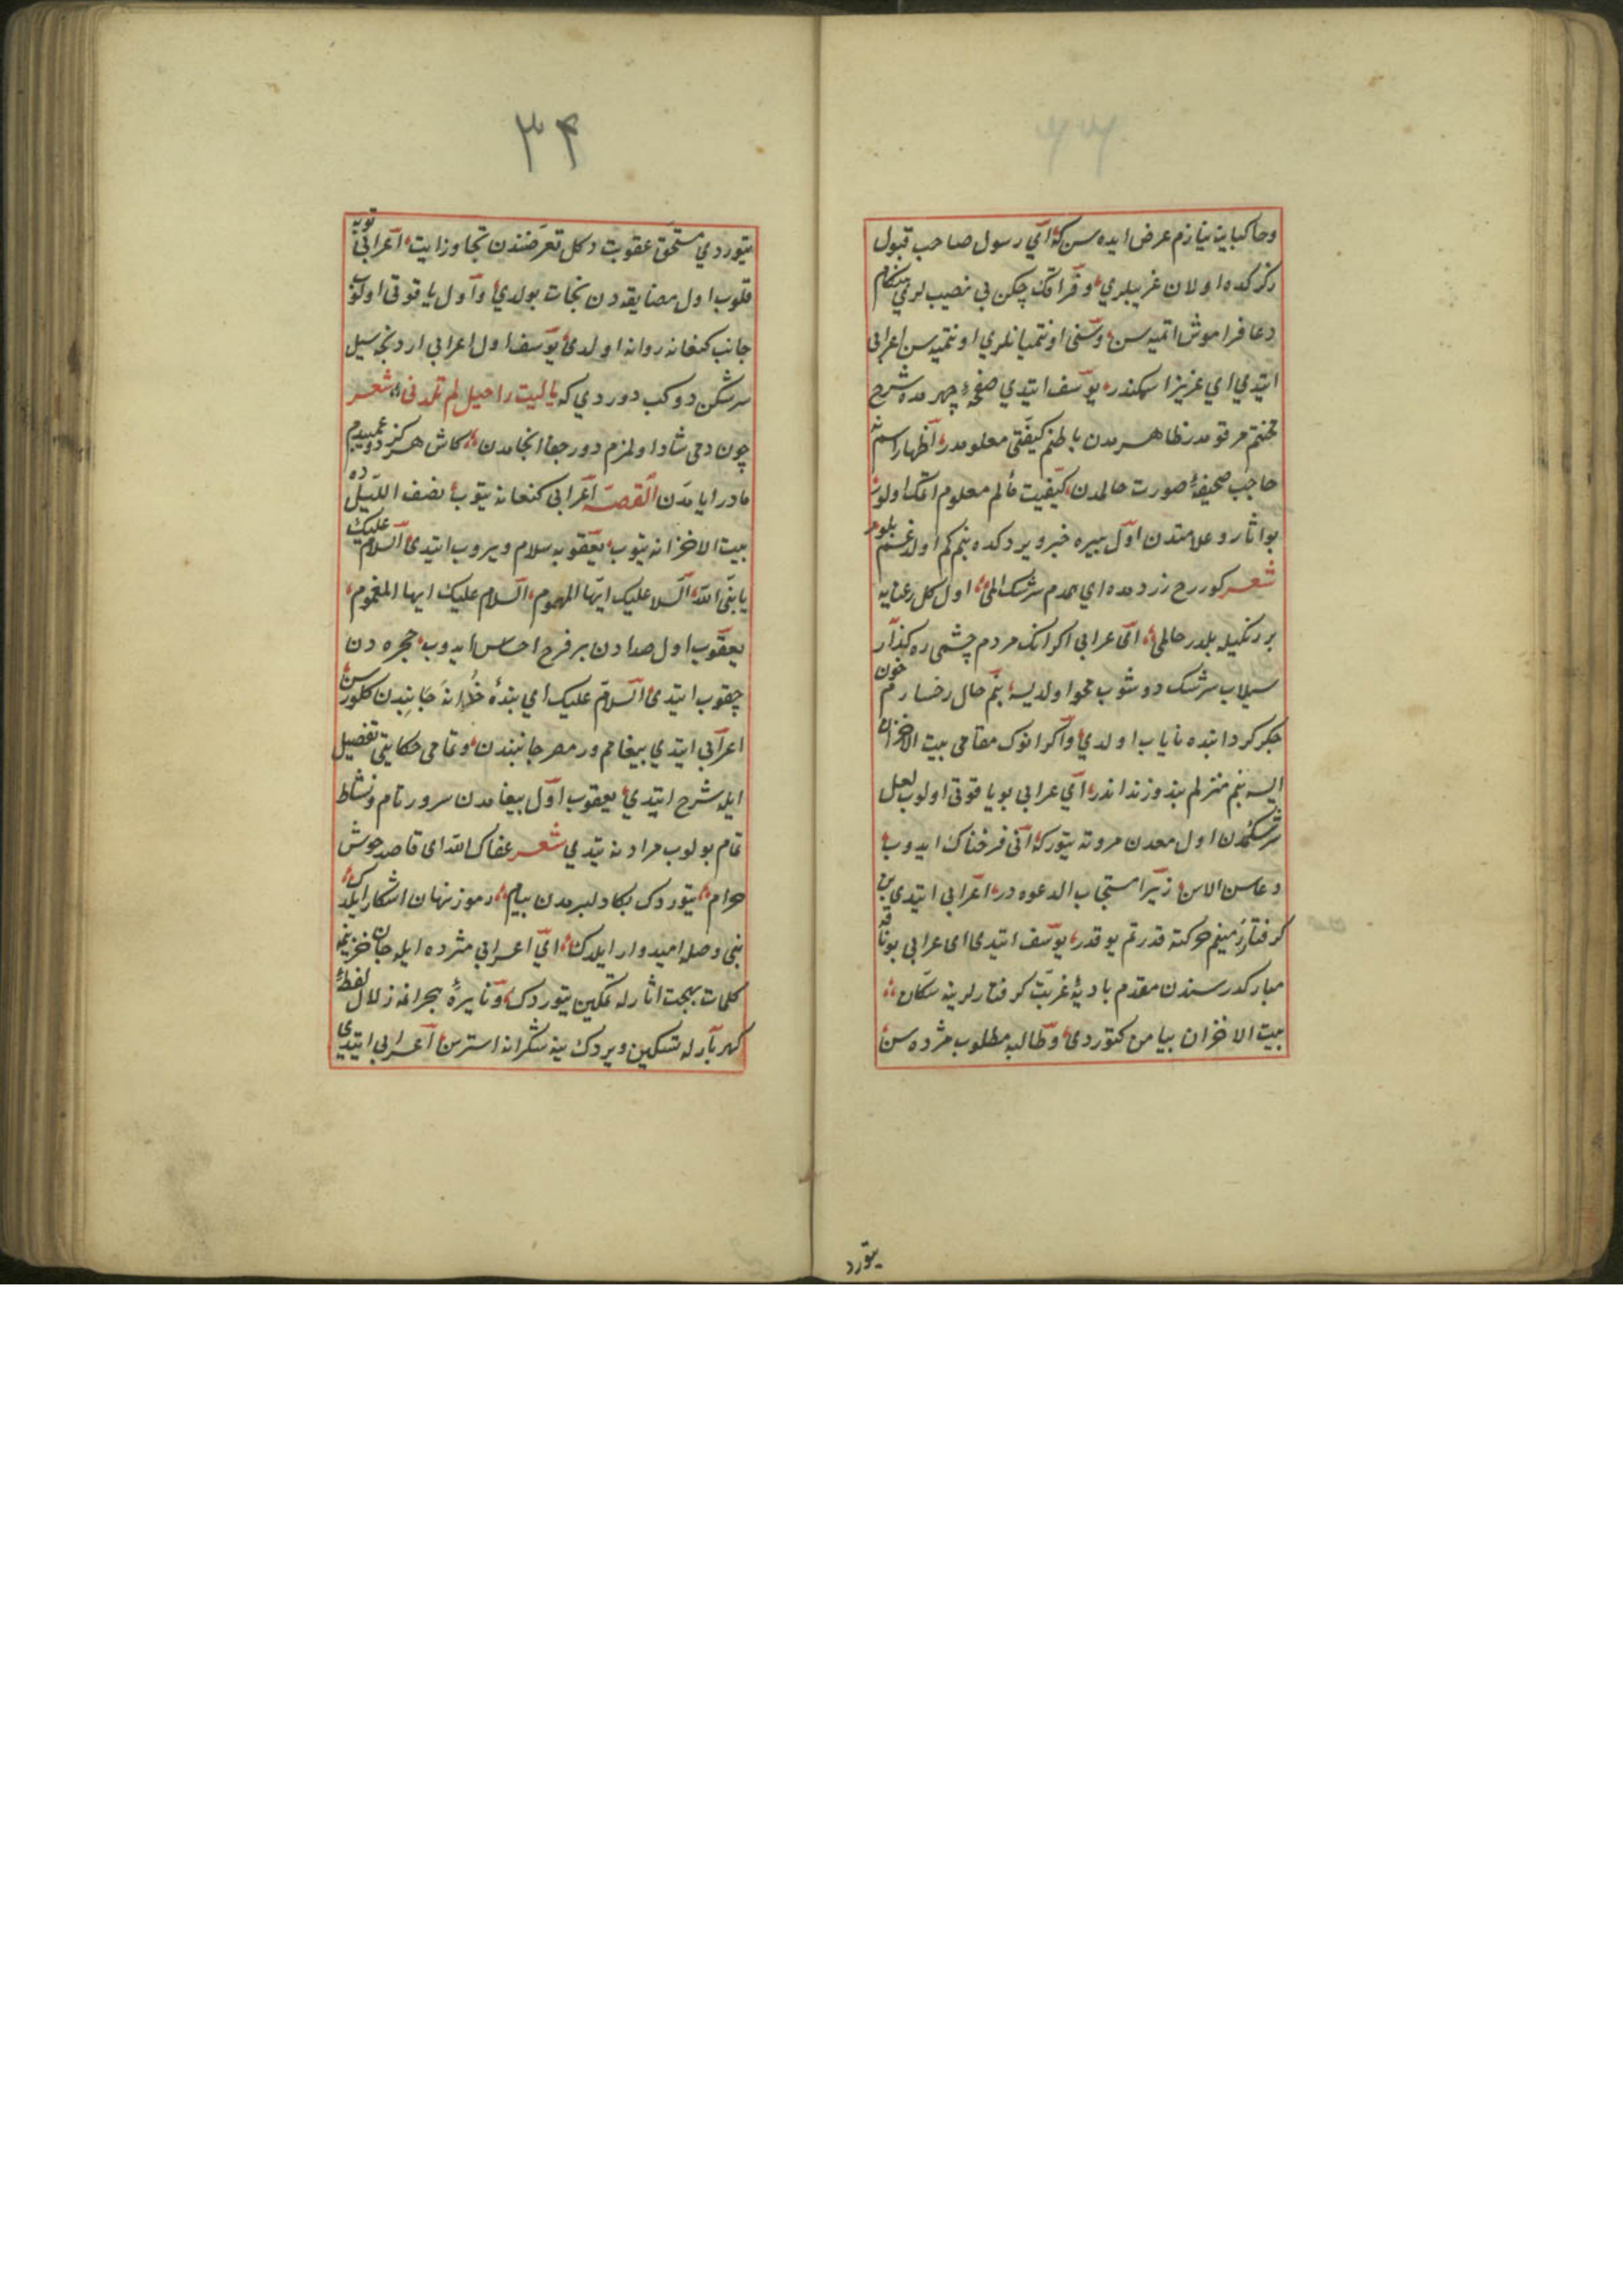 وخاکبایینه نیازم عرض ایده سن که ای رسول صاحب قبول
رذکرکده اولان غریبلری و فراقك چکن بی نصیب لری هنکام
دعا فراموش اتمیه سن و سنی اونتمیانلری اونتمیه سن اعرابی
ایتدی ای عزیز اسمکندر یوسف ایتدی صفحۀ چهرمده شرح
محنتم مرقومدر ظاهرمدن باطنم کیفیتی معلومدر اظهار اسمه
حاجب صحیفۀ صورت حالمدن کیفیت مألم معلوم اتمك اولور
بو اثار و علامتدن اول پیره خبر ویردکده بنم کم اولدغم بلور
شعر کور رخ زردمده ای همدم سرشك المی اول کل رعنایه
بر رنکیله بلدر حالمی ای اعرابی اکر انك مردم چشمی ره کذار
سیلاب سرشك دوشوب محو اولدیسه بنم خال رخسارم خون
جکر کردابنده نایاب اولدی و اکر انوك مقامی بیت الاحزان
ایسه بنم منزلم بند و زنداندر ای اعرابی بو یاقوتی اولوب لعل
سرشکمدن اول معدن مروته یتور که انی فرحناك ایدوب
دعاسن الاسن زیرا مستجاب الدعوه در اعرابی ایتدی بن
کرفتار زمینم حرکته قدرتم یوقدر یوسف ایتدی ای اعرابی بو ناقه
مبارکدر سندن مقدم بادیۀ غربت کرفتارلرینه سکان
بیت الاحزان پیامن کتوردی و طالبه مطلوب مژده سن
یتورد
۳۴
یتوردی مستحق عقوبت دکل تعرضندن تجاوز ایت اعرابی توبه
قلوب اول مضایقه دن نجات بولدی و اول یاقوتی اولوب
جانب کنعانه روانه اولدی یوسف اول اعرابی اردنجه سیل
سرشکن دوکب دوردی که یا لیت راحیل لم تلدنی شعر
چون دمی شاد اولمزم دور جفا انجامدن کاش هرکز دوغمیدم
مادر ایامدن القصه اعرابی کنعانه یتوب نصف اللیل ده
بیت الاحزانه یتوب یعقوبه سلام ویروب ایتدی السلام علیك
یا بنی الله السلا علیك ایها المهموم السلام علیك ایها المغموم
یعقوب اول صدادن بر فرح احساس ایدوب حجره دن
چقوب ایتدی السلام علیك ای بندۀ خدا نه جانبدن کلورسن
اعرابی ایتدی پیغامم ور مصر جانبندن و تمامی حکایتی تفصیل
ایله شرح ایتدی یعقوب اول پیغامدن سرور تام و نشاط
تمام بولوب مرادنه یتدی شعر عفاك الله ای قاصد خوش
خرام یتوردك بکا دلبرمدن پیام رموز نهان اشکار ایلدك
بنی وصله امیدوار ایلدك ای اعرابی مژده ایله جان حزینمه
کلمات بهجت اثارله تمکین یتوردك و نایرۀ هجرانه زلال لفظ
کهربارله تسکین ویردك نیه شکرانه استرسن اعرابی ایتدی